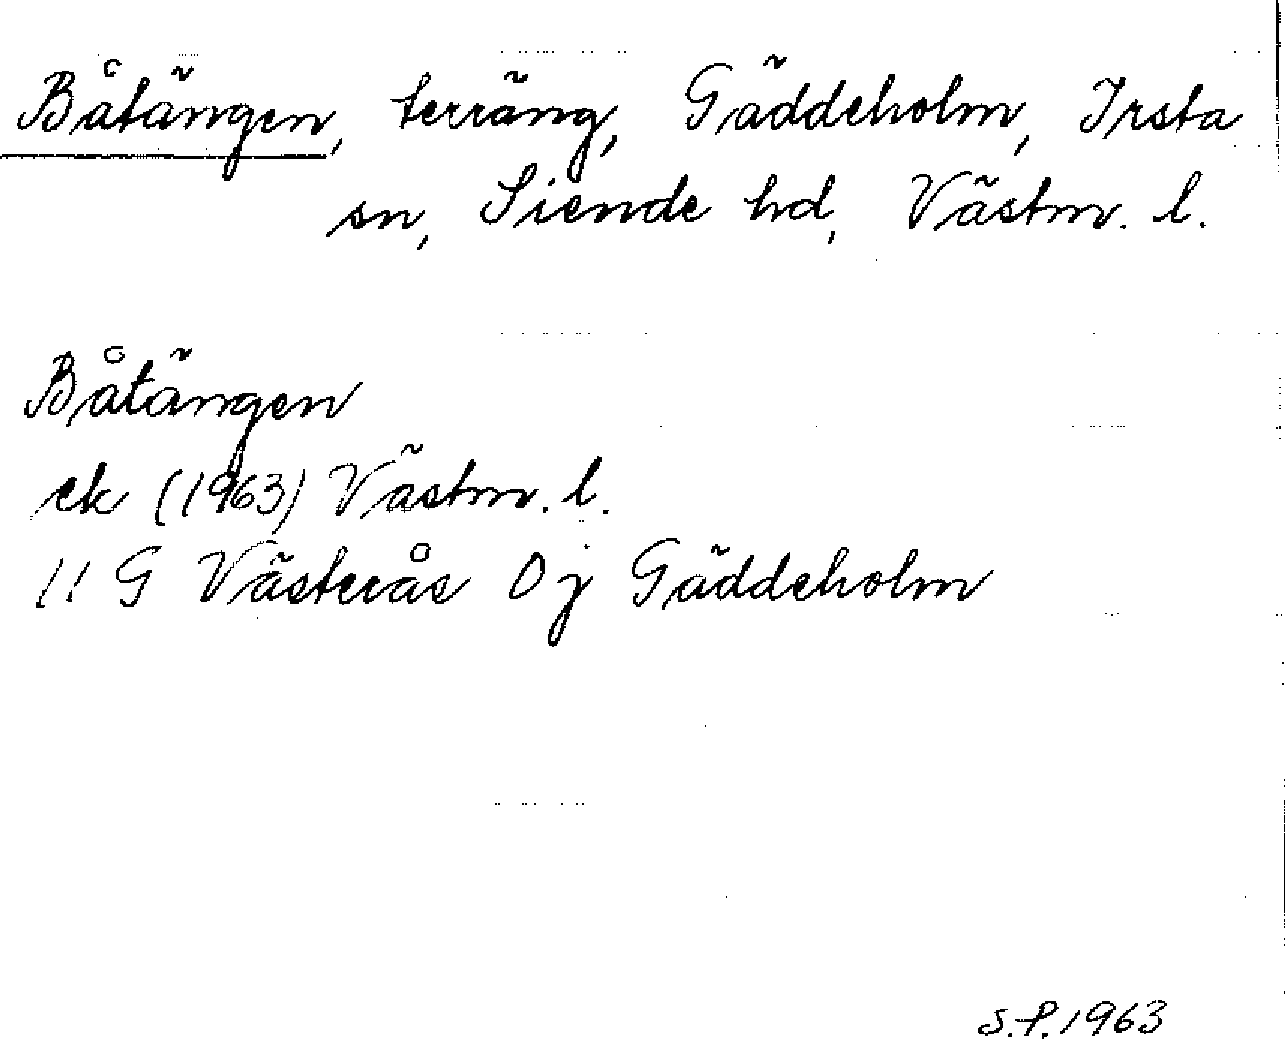 Båtängen, terräng, Gäddeholm, Irsta
sn, Siende hd, Västm. l.
Båtängen
ek (1963) Västm. l.
11 G Västerås 0 j Gäddeholm
S.P. 1963